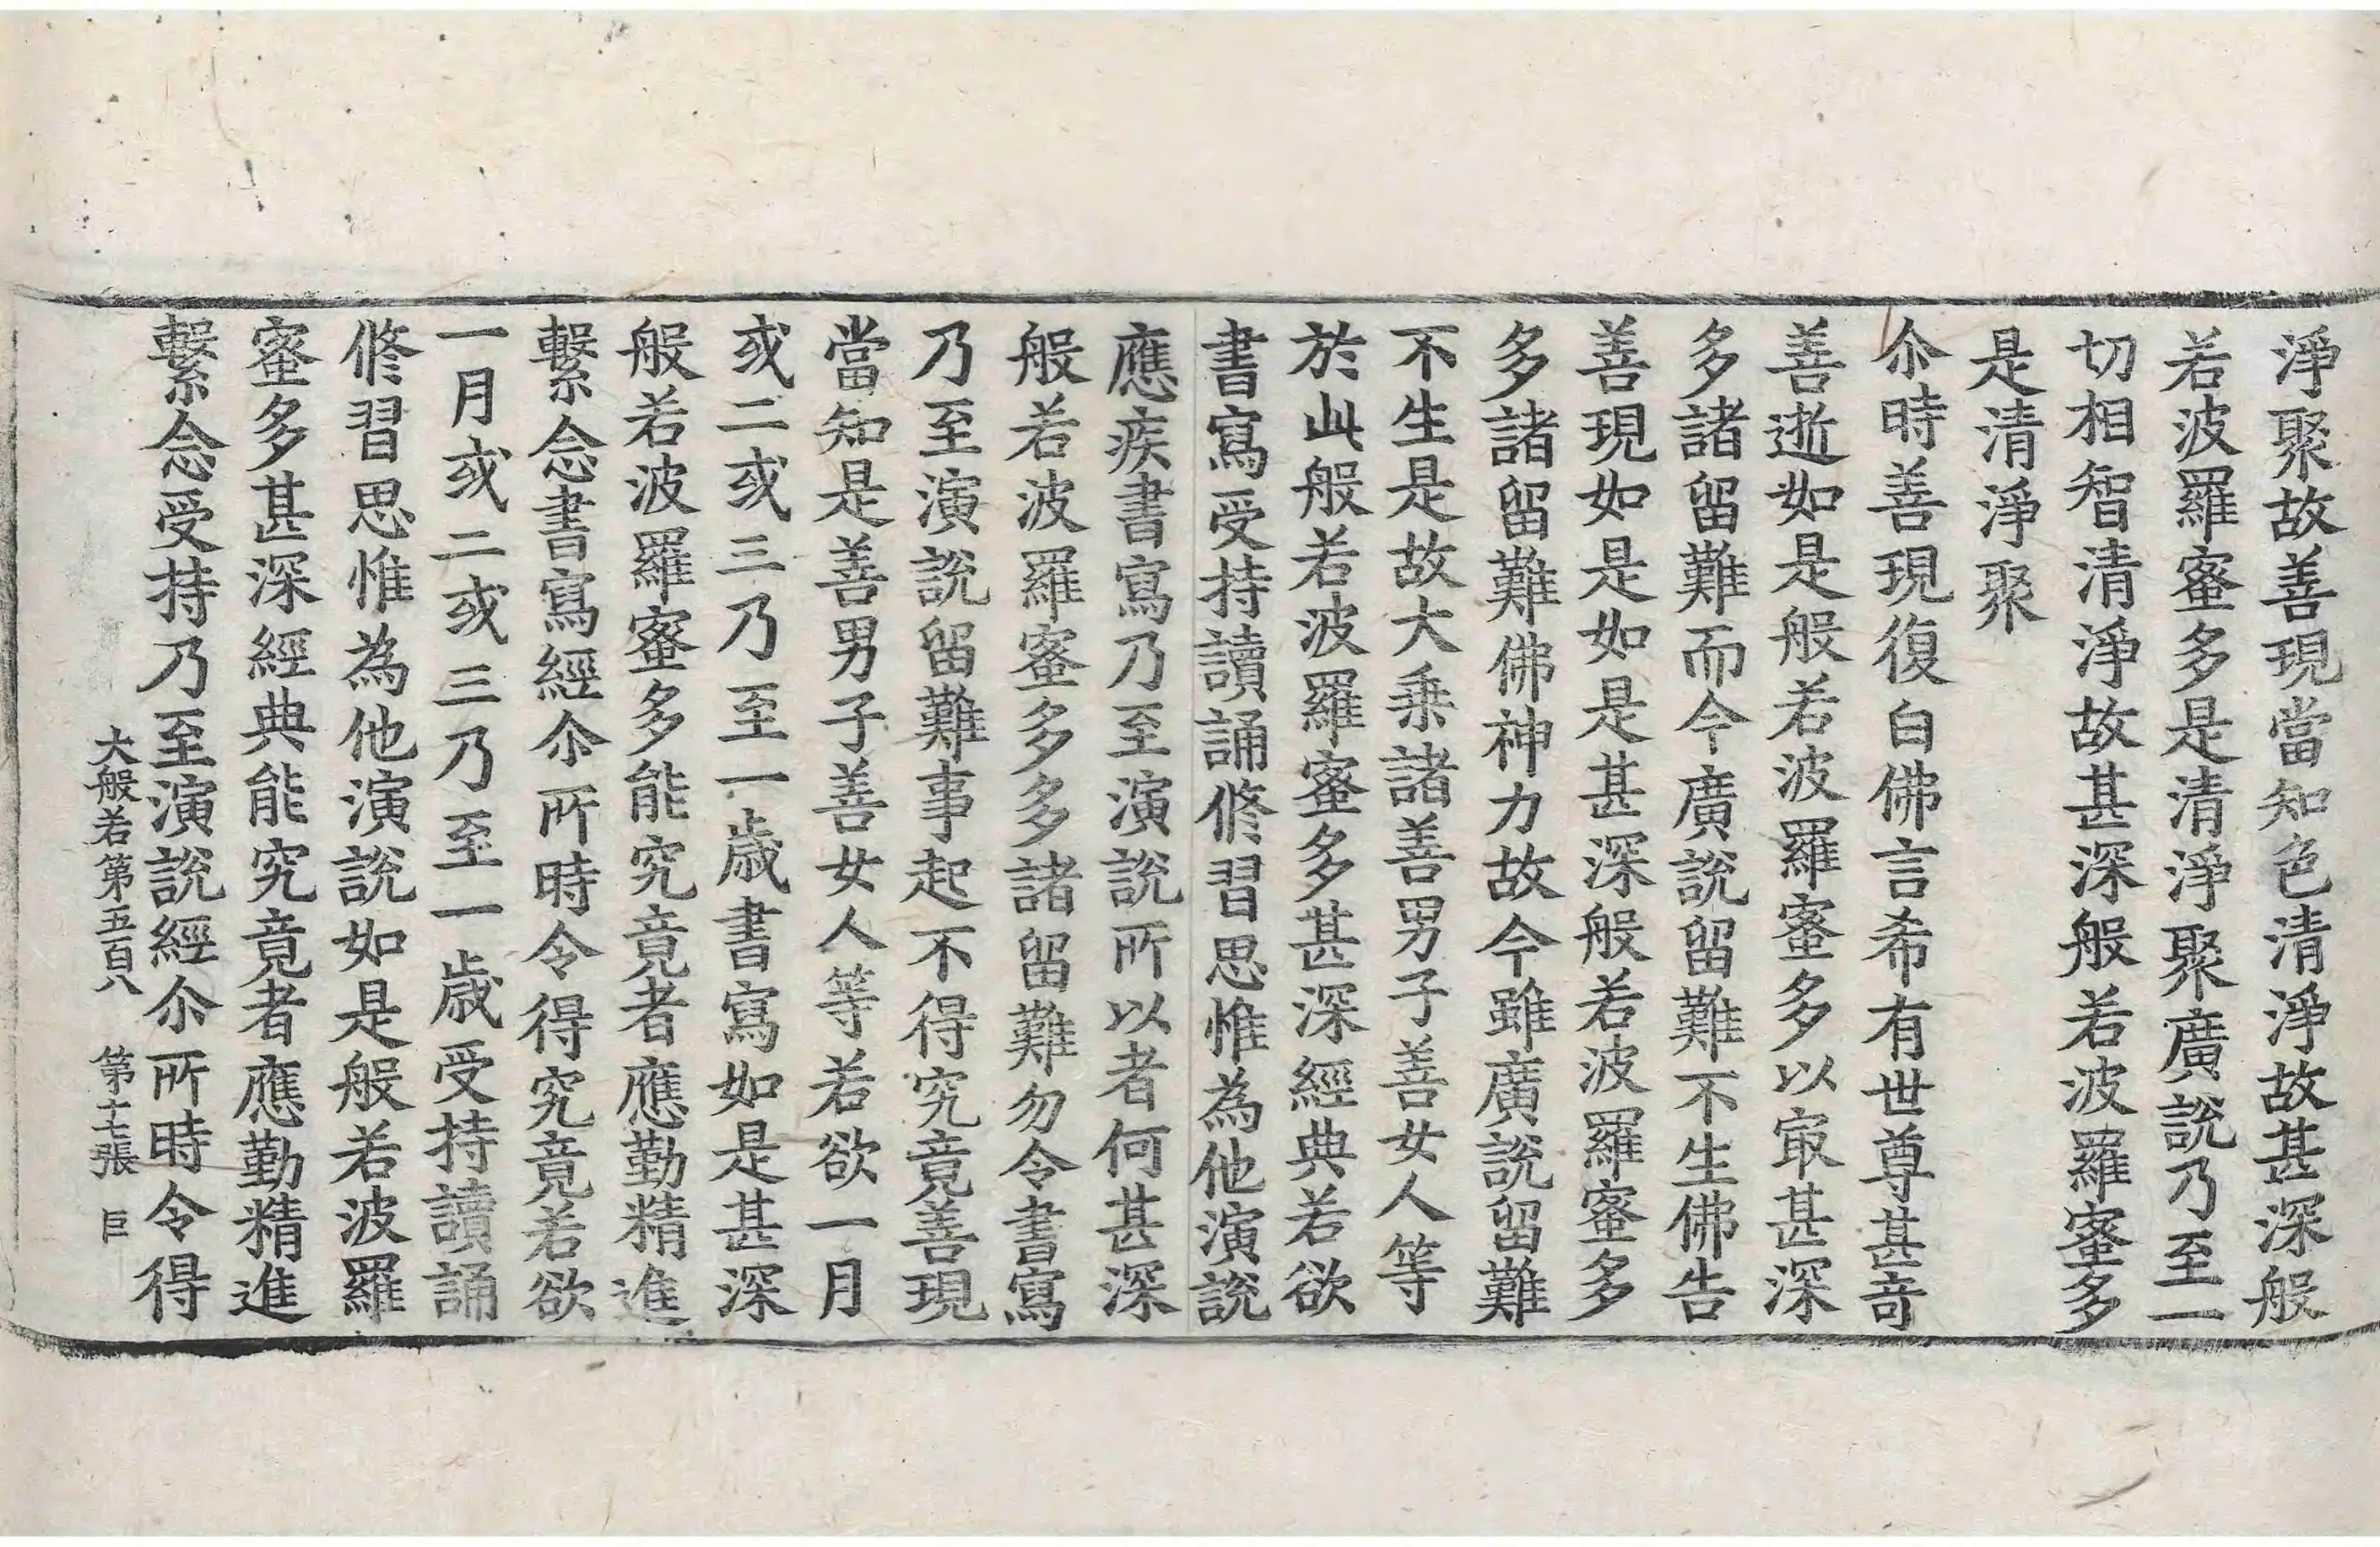 淨聚故善現當知色清淨故甚深般
若波羅蜜多是清淨聚廣說乃至一
切相智清淨故甚深般若波羅蜜多
是清淨聚
尒時善現復白佛言希有世尊甚奇
善逝如是般若波羅蜜多以㝡甚深
多諸留難而今廣說留難不生佛告
善現如是如是甚深般若波羅蜜多
多諸留難佛神力故今雖廣說留難
不生是故大乗諸善男子善女人等
於此般若波羅蜜多甚深經典若欲
書寫受持讀誦修習思惟為他演說
應疾書寫乃至演說所以者何甚深
般若波羅蜜多多諸留難勿令書寫
乃至演說留難事起不得究竟善現
當知是善男子善女人等若欲一月
或二或三乃至一歲書寫如是甚深
般若波羅蜜多能究竟者應勤精進
繫念書寫經尒所時令得究竟若欲
一月或二或三乃至一歲受持讀誦
修習思惟為他演說如是般若波羅
蜜多甚深經典能究竟者應勤精進
繫念受持乃至演說經尒所時令得
大般若第五百八 第十七張 巨